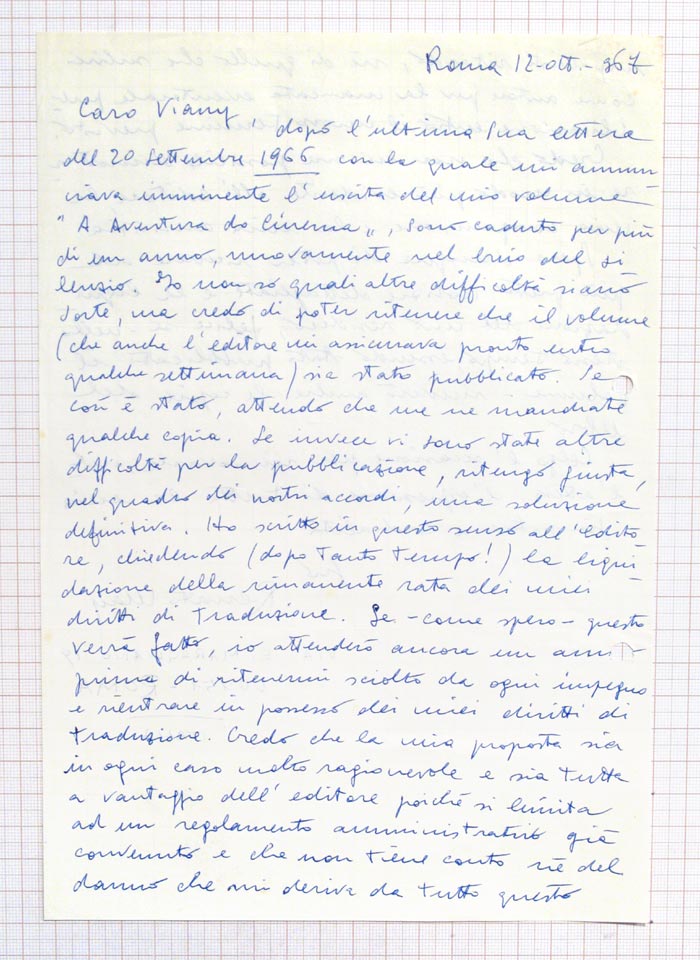 Roma 12-ott.-967
Caro Viany,
dopo l'ultima Sua lettera
del 20 Settembre 1966 con la quale mi annun-
ciava imminente l'uscita del mio volume
"A Aventura do Cinema", sono caduto per più
di un anno, nuovamente nel buio del si
lenzio. Io non so quali altre difficoltà siano
sorte, ma credo di poter ritenere che il volume
(che anche l'editore mi assicurava pronto entro
qualche settimana) sia stato pubblicato. Se
così è stato, attendo che me ne mandiate
qualche copia. Se invece vi sono state altre
difficoltà per la pubblicazione, ritengo giusta,
nel quadro dei nostri accordi, una soluzione
definitiva. Ho scritto in questo senso all'edito
re, chiedendo (dopo tanto tempo!) la liqui
dazione della rimanente rata dei miei
diritti di traduzione. Se - come spero - questo
verrà fatto, io attenderò ancora un anno
prima di ritenermi sciolto da ogni impegno
e rientrare in possesso dei miei diritti di
traduzione. Credo che la mia proposta sia
in ogni caso molto ragionevole e sia tutta
a vantaggio dell'editore poiché si limita
ad un regolamento amministrativo già
convenuto e che non tiene conto né del
danno che mi deriva da tutto questo